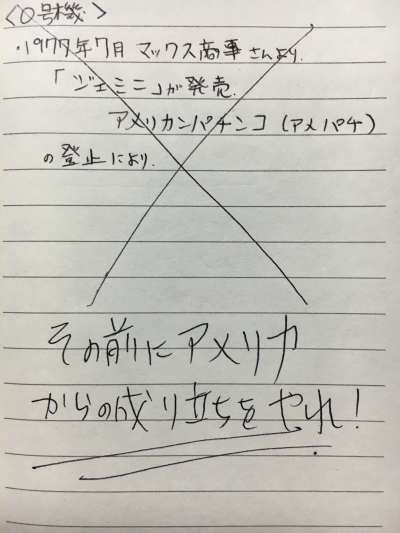 〈0号機〉
・1977年7月 マックス商事さんより.
「ジェミニ」が発売.
アメリカンパチンコ(アメパチ)
の登止により.
その前にアメリカ
からの成り立ちをやれ!